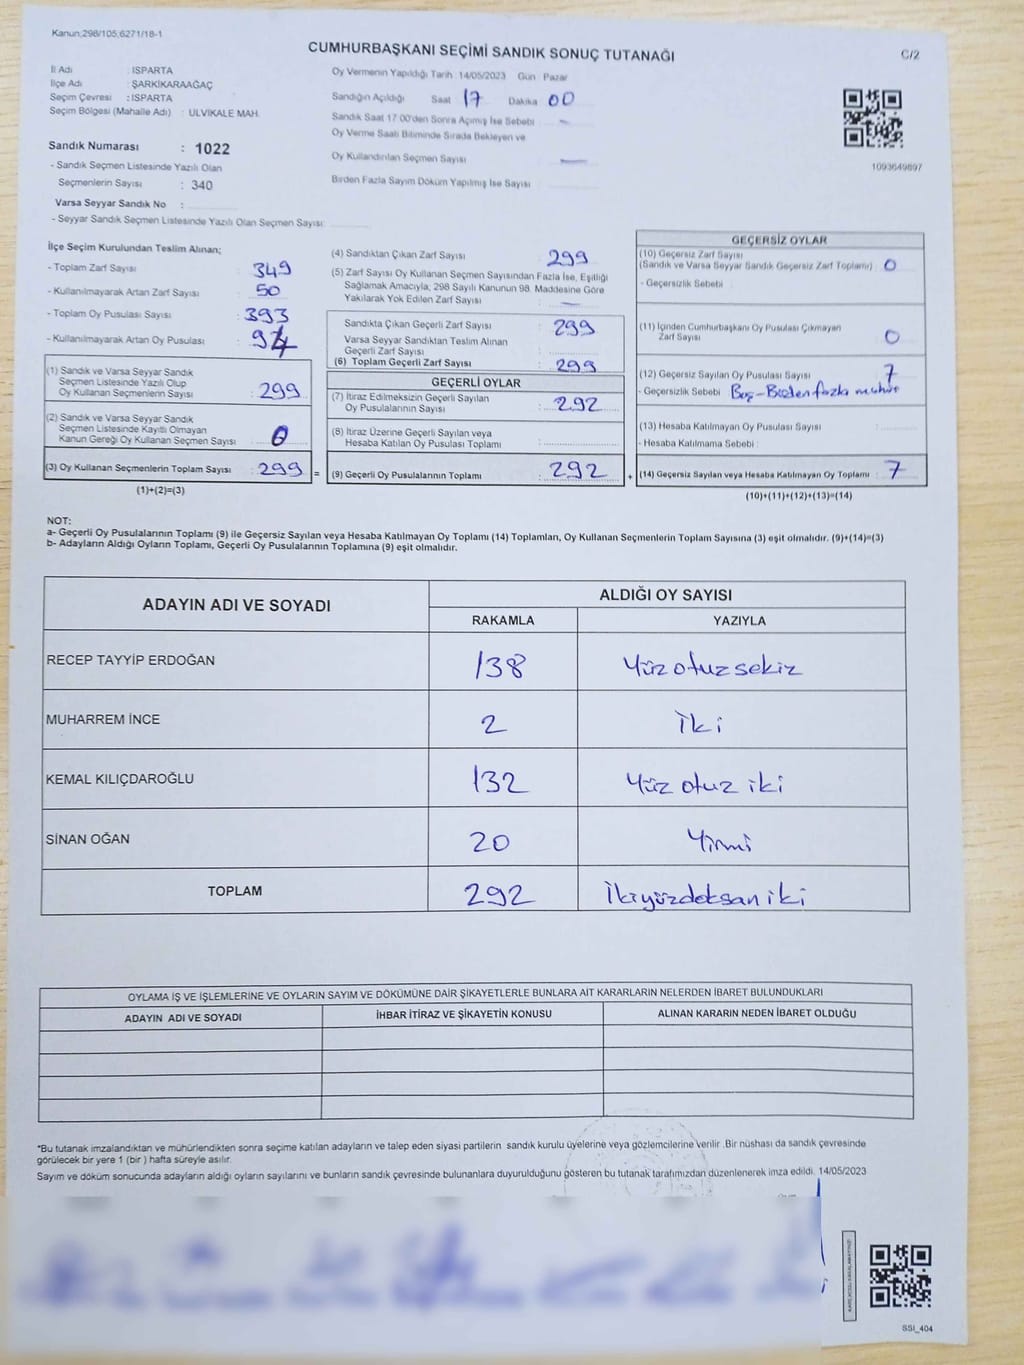 Kanun;298/105,6271/18-1
CUMHURBAŞKANI SEÇİMİ SANDIK SONUÇ TUTANAĞI
C/2
İl Adı : ISPARTA
İlçe Adı : ŞARKİKARAAĞAÇ
Seçim Çevresi : ISPARTA
Seçim Bölgesi (Mahalle Adı) : ULVİKALE MAH.
Sandık Numarası : 1022
- Sandık Seçmen Listesinde Yazılı Olan
Seçmenlerin Sayısı : 340
Varsa Seyyar Sandık No :
- Seyyar Sandık Seçmen Listesinde Yazılı Olan Seçmen Sayısı:
Oy Vermenin Yapıldığı Tarih : 14/05/2023 Gün : Pazar
Sandığın Açıldığı Saat 17 Dakika 00
Sandık Saat 17.00'den Sonra Açımış İse Sebebi :
Oy Verme Saati Bitiminde Sırada Bekleyen ve
Oy Kullandırılan Seçmen Sayısı
Birden Fazla Sayım Döküm Yapılmış İse Sayısı
1093649897
İlçe Seçim Kurulundan Teslim Alınan;
- Toplam Zarf Sayısı : 349
- Kullanılmayarak Artan Zarf Sayısı : 50
- Toplam Oy Pusulası Sayısı : 393
- Kullanılmayarak Artan Oy Pusulası : 94
(1) Sandık ve Varsa Seyyar Sandık
Seçmen Listesinde Yazılı Olup
Oy Kullanan Seçmenlerin Sayısı : 299
(2) Sandık ve Varsa Seyyar Sandık
Seçmen Listesinde Kayıtlı Olmayan
Kanun Gereği Oy Kullanan Seçmen Sayısı : 0
(3) Oy Kullanan Seçmenlerin Toplam Sayısı : 299 =
(1)+(2)=(3)
(4) Sandıktan Çıkan Zarf Sayısı : 299
(5) Zarf Sayısı Oy Kullanan Seçmen Sayısından Fazla İse, Eşitliği
Sağlamak Amacıyla; 298 Sayılı Kanunun 98. Maddesine Göre
Yakılarak Yok Edilen Zarf Sayısı :
Sandıkta Çıkan Geçerli Zarf Sayısı : 299
Varsa Seyyar Sandıktan Teslim Alınan
Geçerli Zarf Sayısı :
(6) Toplam Geçerli Zarf Sayısı : 299
GEÇERLİ OYLAR
(7) İtiraz Edilmeksizin Geçerli Sayılan
Oy Pusulalarının Sayısı : 292
(8) İtiraz Üzerine Geçerli Sayılan veya
Hesaba Katılan Oy Pusulası Toplamı :
(9) Geçerli Oy Pusulalarının Toplamı : 292 +
GEÇERSİZ OYLAR
(10) Geçersiz Zarf Sayısı
(Sandık ve Varsa Seyyar Sandık Geçersiz Zarf Toplamı) : 0
- Geçersizlik Sebebi :
(11) İçinden Cumhurbaşkanı Oy Pusulası Çıkmayan
Zarf Sayısı : 0
(12) Geçersiz Sayılan Oy Pusulası Sayısı : 7
- Geçersizlik Sebebi : Boş-Birden fazla mühür
(13) Hesaba Katılmayan Oy Pusulası Sayısı :
- Hesaba Katılmama Sebebi :
(14) Geçersiz Sayılan veya Hesaba Katılmayan Oy Toplamı : 7
(10)+(11)+(12)+(13)=(14)
NOT:
a- Geçerli Oy Pusulalarının Toplamı (9) ile Geçersiz Sayılan veya Hesaba Katılmayan Oy Toplamı (14) Toplamları, Oy Kullanan Seçmenlerin Toplam Sayısına (3) eşit olmalıdır. (9)+(14)=(3)
b- Adayların Aldığı Oyların Toplamı, Geçerli Oy Pusulalarının Toplamına (9) eşit olmalıdır.
ADAYIN ADI VE SOYADI ALDIĞI OY SAYISI
RAKAMLA YAZIYLA
RECEP TAYYİP ERDOĞAN 138 Yüz otuz sekiz
MUHARREM İNCE 2 İki
KEMAL KILIÇDAROĞLU 132 Yüz otuz iki
SİNAN OĞAN 20 Yirmi
TOPLAM 292 İkiyüzdoksan iki
OYLAMA İŞ VE İŞLEMLERİNE VE OYLARIN SAYIM VE DÖKÜMÜNE DAİR ŞİKAYETLERLE BUNLARA AİT KARARLARIN NELERDEN İBARET BULUNDUKLARI
ADAYIN ADI VE SOYADI İHBAR İTİRAZ VE ŞİKAYETİN KONUSU ALINAN KARARIN NEDEN İBARET OLDUĞU
*Bu tutanak imzalandıktan ve mühürlendikten sonra seçime katılan adayların ve talep eden siyasi partilerin sandık kurulu üyelerine veya gözlemcilerine verilir .Bir nüshası da sandık çevresinde
görülecek bir yere 1 (bir ) hafta süreyle asılır.
Sayım ve döküm sonucunda adayların aldığı oyların sayılarını ve bunların sandık çevresinde bulunanlara duyurulduğunu gösteren bu tutanak tarafımızdan düzenlenerek imza edildi. 14/05/2023
SSI_404